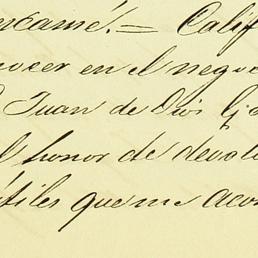 encamé. — Calif
nocer en el nego
Juan de Dios Ej
l honor de devol
útiles que me acom